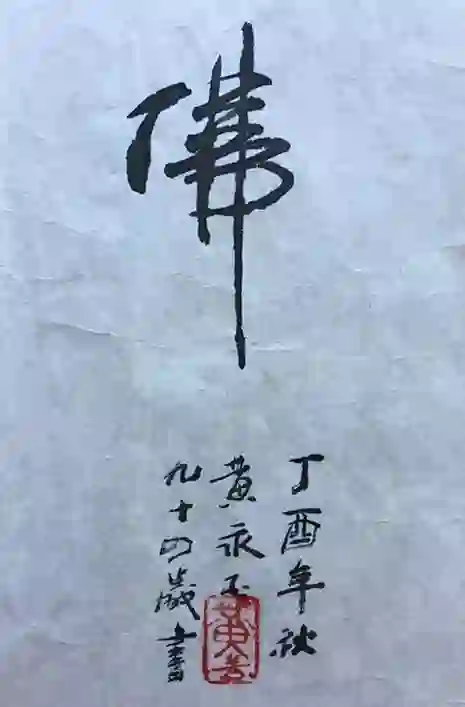 佛
丁酉年秋
黄永玉
九十四歲書
黄